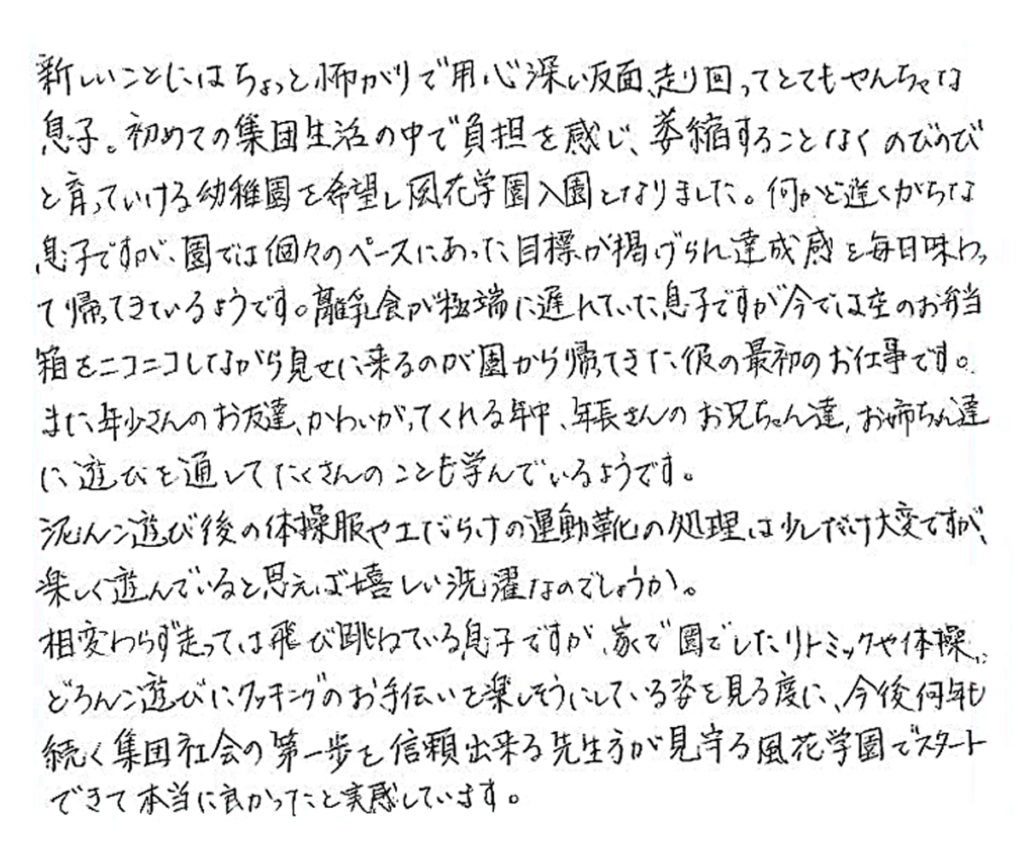 新しいことにはちょっと怖がりで用心深い反面、走り回ってとてもやんちゃな
息子。初めての集団生活の中で負担を感じ、萎縮することなくのびのび
と育っていける幼稚園を希望し風花学園入園となりました。何かと遅くがちな
息子ですが、園では個々のペースにあった目標が掲げられ達成感を毎日味わっ
て帰ってきているようです。離乳食が極端に遅れていた息子ですが今では空のお弁当
箱をニコニコしながら見せに来るのが園から帰ってきた彼の最初のお仕事です。
また、年少さんのお友達、かわいがってくれる年中、年長さんのお兄ちゃん達、お姉ちゃん達
に遊びを通してたくさんのことも学んでいるようです。
泥んこ遊び後の体操服や土だらけの運動靴の処理は少しだけ大変ですが、
楽しく遊んでいると思えば嬉しい洗濯なのでしょうか。
相変わらず走っては飛び跳ねている息子ですが、家で園でしたリトミックや体操、
どろんこ遊びにクッキングのお手伝いを楽しそうにしている姿を見る度に、今後何年も
続く集団社会の第一歩を信頼出来る先生方が見守る風花学園でスタート
できて本当に良かったと実感しています。